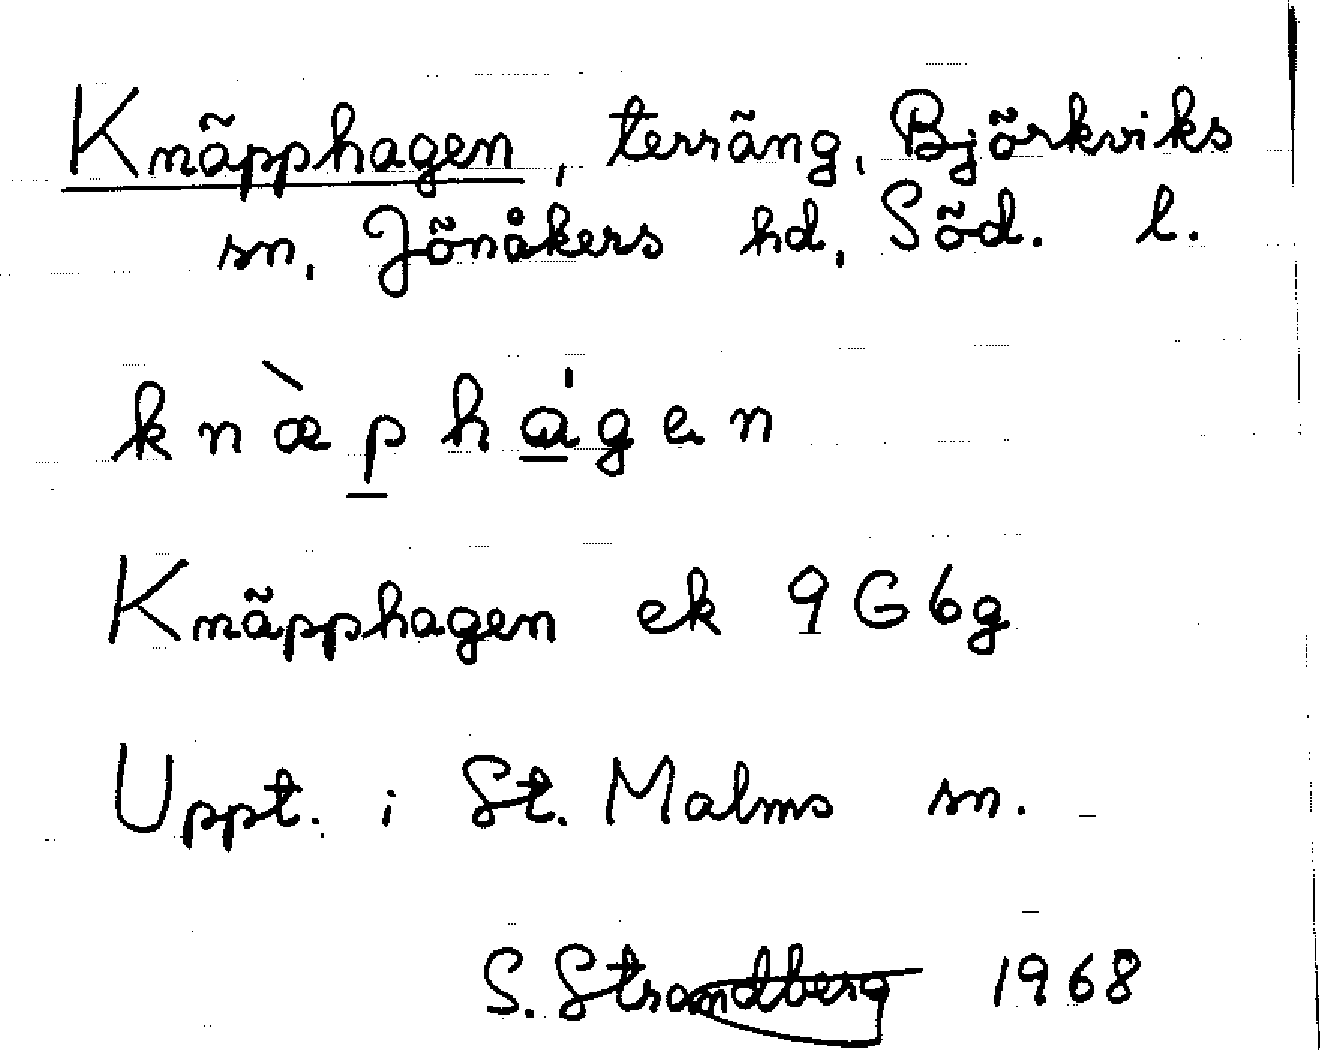 Knäpphagen, terräng, Björkviks
sn, Jönåkers hd, Söd. l.
knæ̀phá̱gen
Knäpphagen ek 9G6g
Uppt. i St. Malms sn.
S. Strandberg 1968